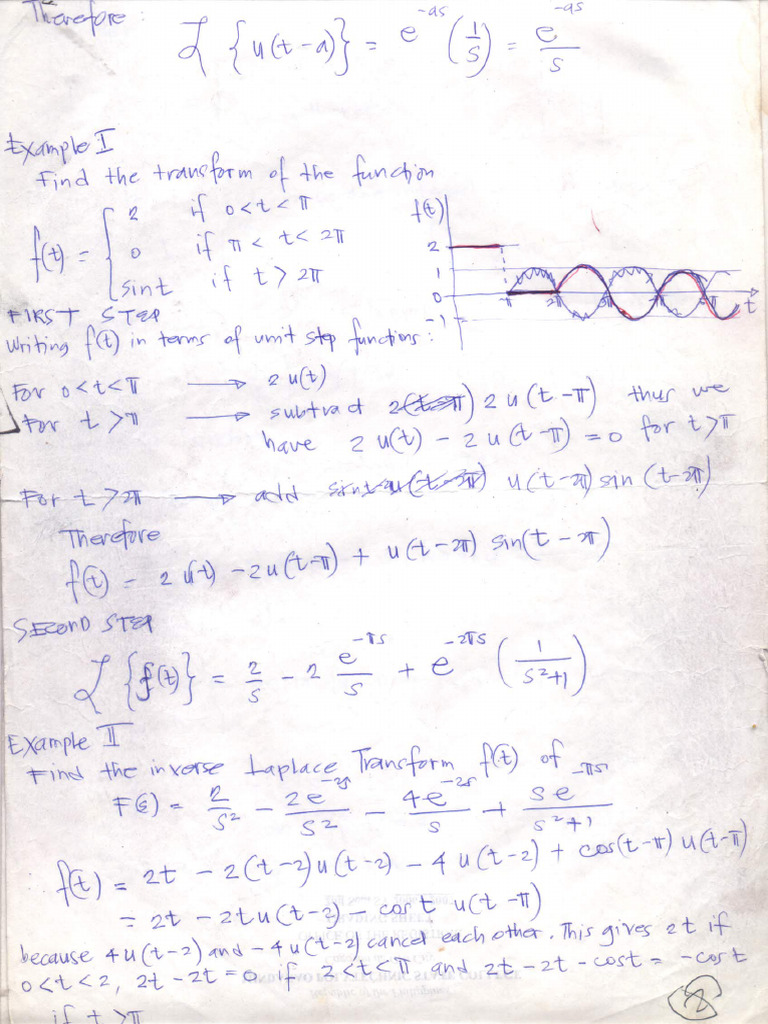 Therefore
ℒ {u(t-a)} = e^-as (1/s) = e^-as/s
Example I
Find the transform of the function
f(t) = { 2 if 0<t<π
0 if π<t<2π
sint if t>2π
f(t)
2
1
0
-1
π 2π 3π t
FIRST STEP
Writing f(t) in terms of unit step functions:
For 0<t<π → 2u(t)
For t>π → subtract 2u(t-π) thus we
have 2u(t) - 2u(t-π) = 0 for t>π
For t>2π → add u(t-2π) sin(t-2π)
Therefore
f(t) = 2u(t) - 2u(t-π) + u(t-2π) sin(t-2π)
SECOND STEP
ℒ {f(t)} = 2/s - 2 e^-πs/s + e^-2πs (1/(s²+1))
Example II
Find the inverse Laplace Transform f(t) of
F(s) = 2/s² - 2e^-2s/s² - 4e^-2s/s + se^-πs/(s²+1)
f(t) = 2t - 2(t-2)u(t-2) - 4u(t-2) + cos(t-π)u(t-π)
= 2t - 2tu(t-2) - cost u(t-π)
because 4u(t-2) and -4u(t-2) cancel each other. This gives 2t if
0<t<2, 2t-2t=0 if 2<t<π and 2t-2t-cost = -cost
if t>π
8